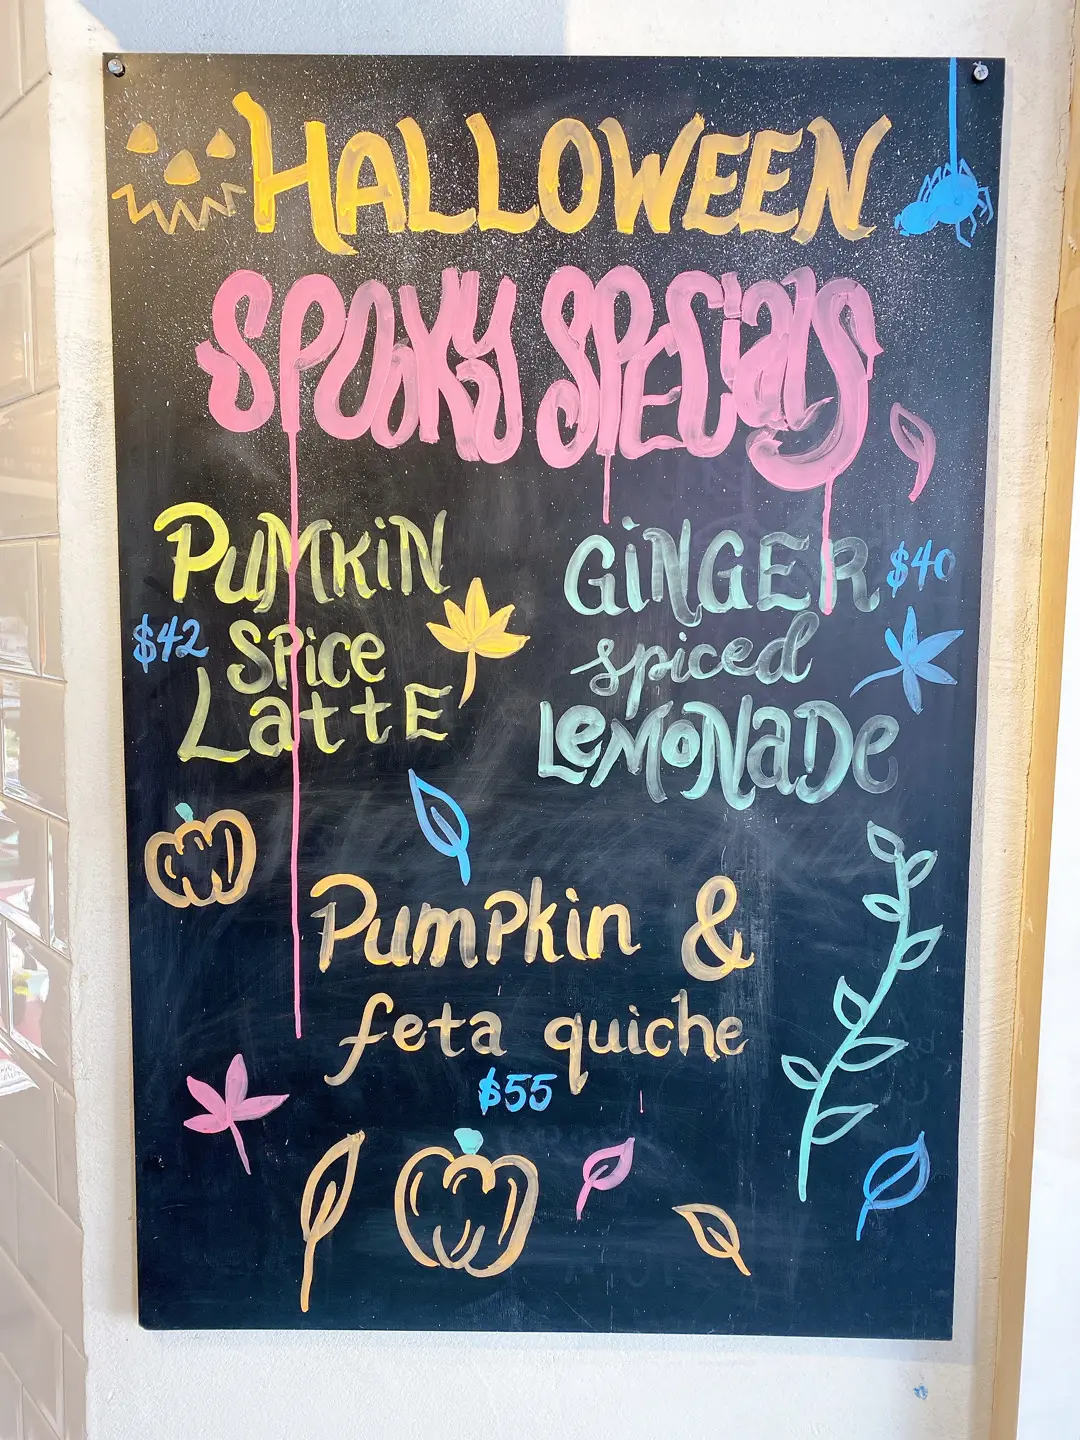 HALLOWEEN
SPOOKY SPECialS
PUMKiN
$42 SPice
LattE
GiNGER $40
spiced
LeMONaDe
Pumpkin &
feta quiche
$55